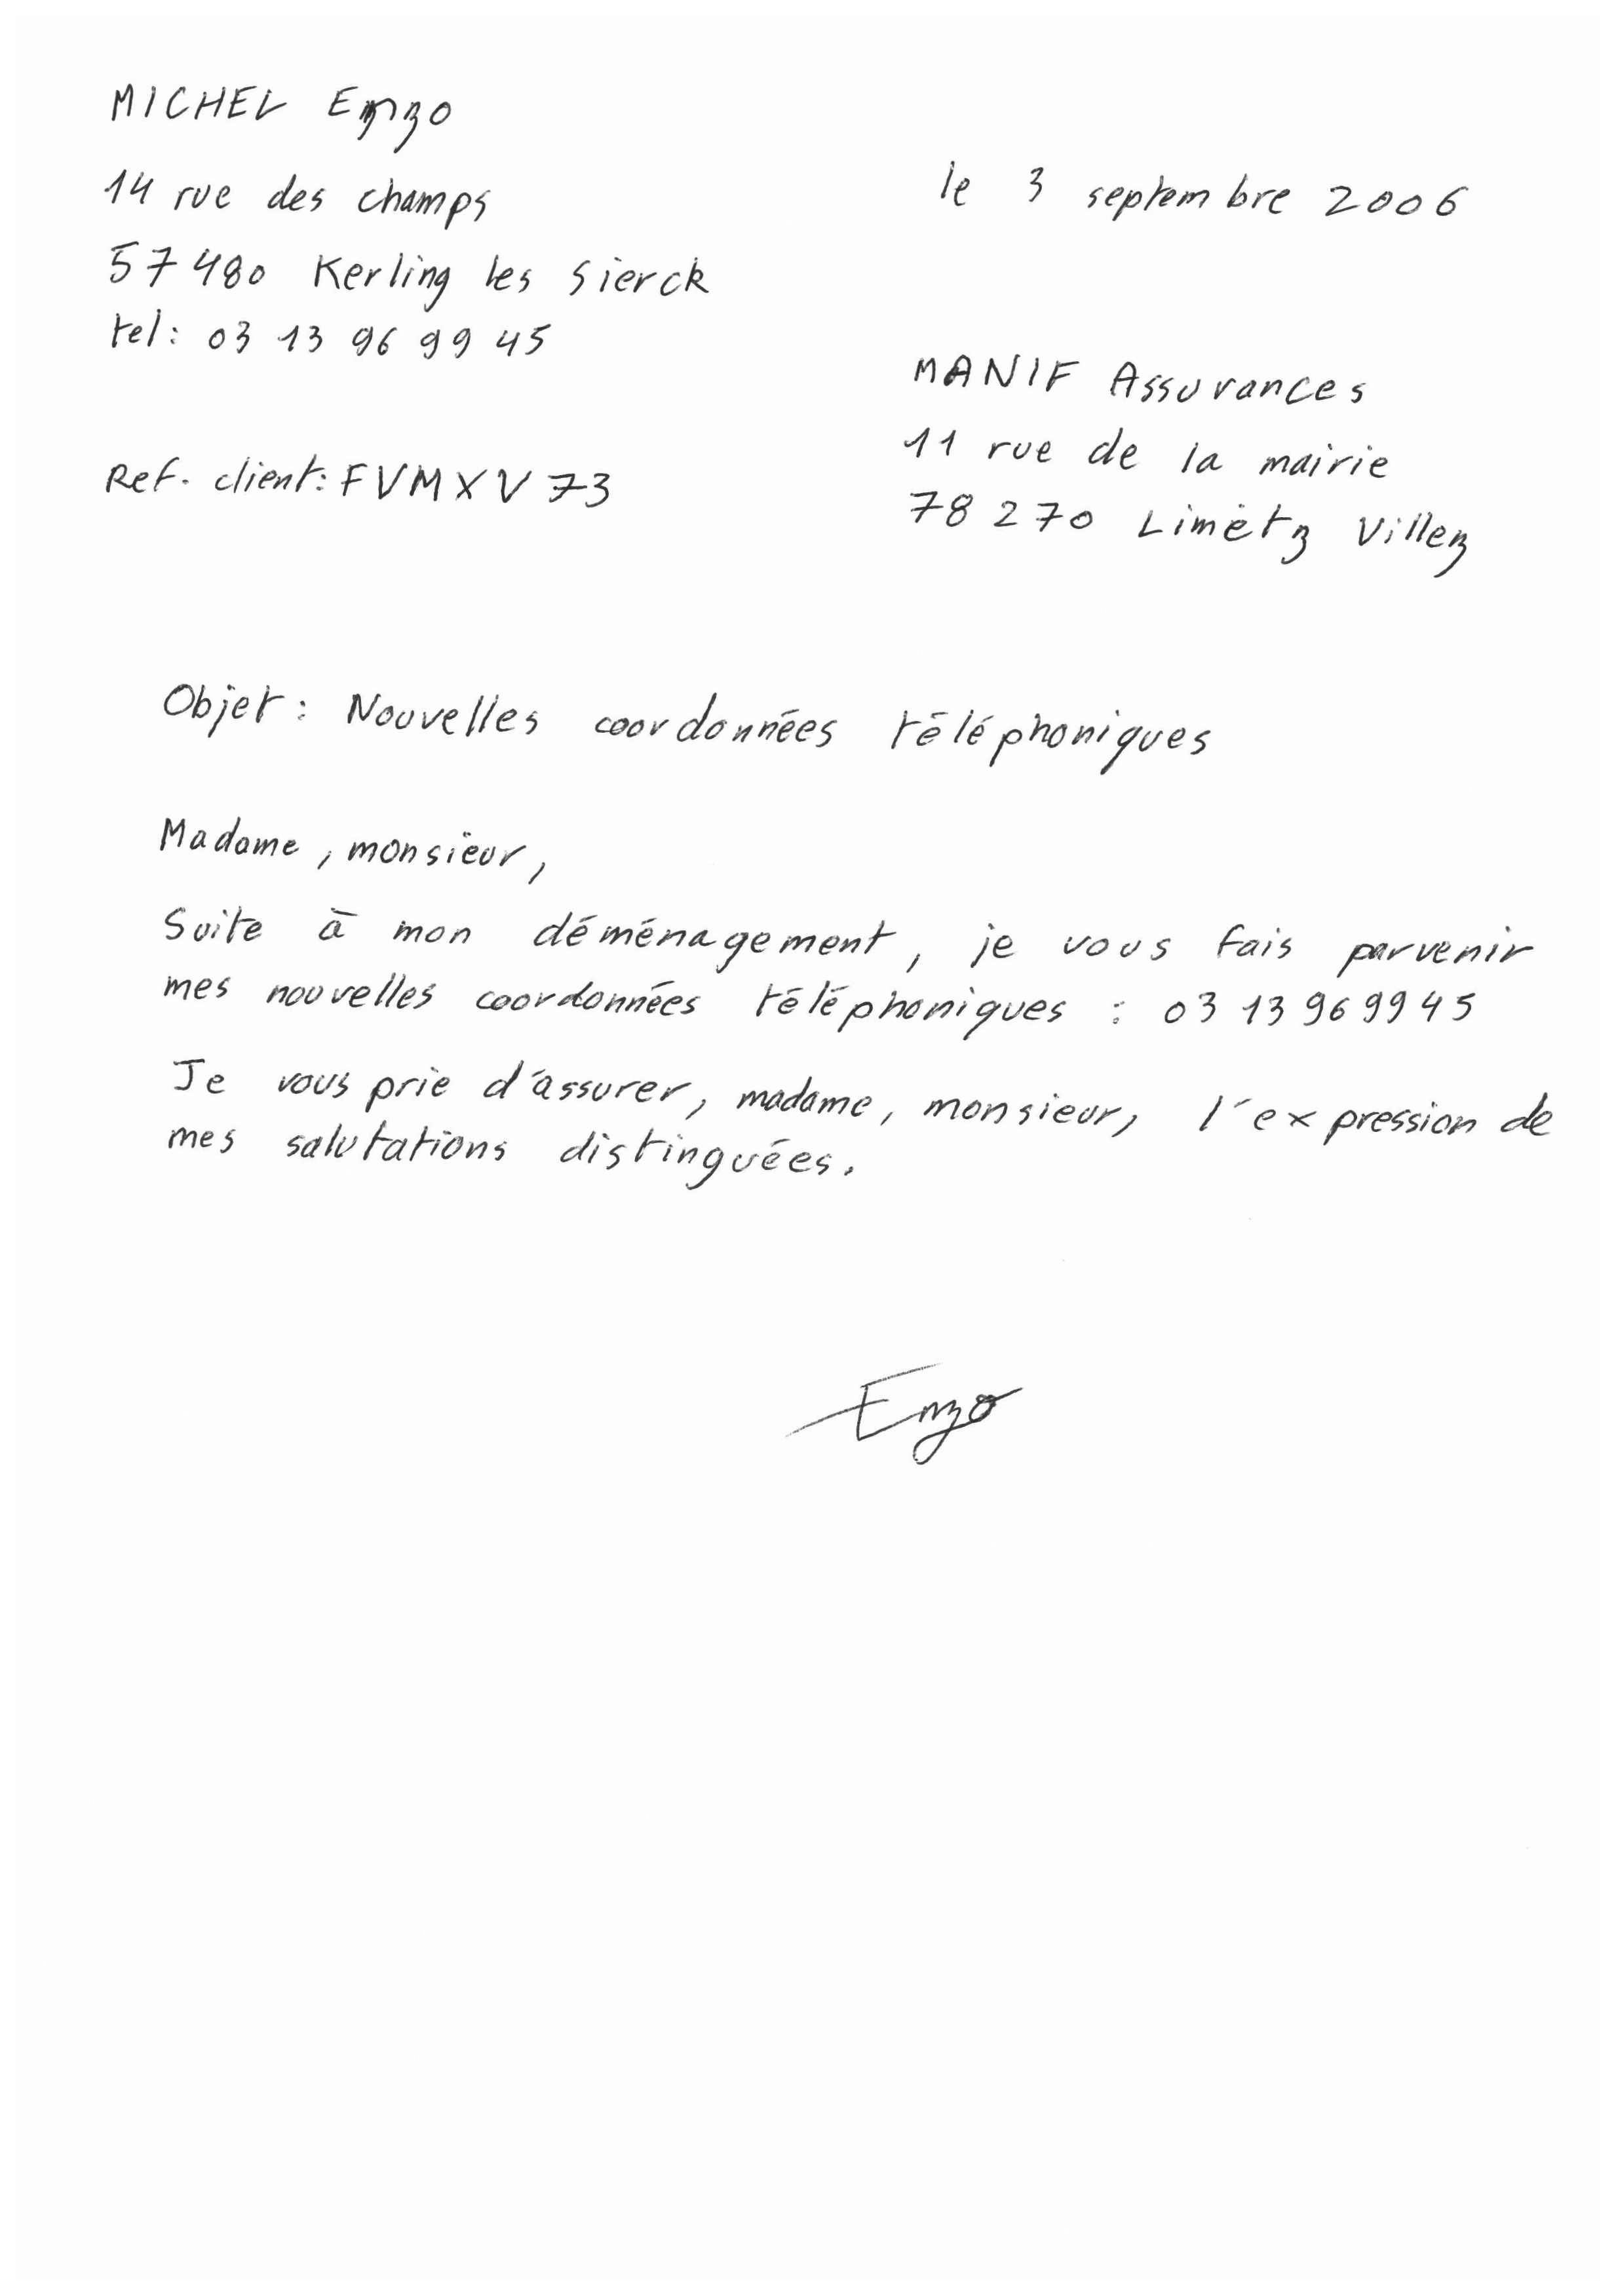 MICHEL Enzo
14 rue des champs
57480 Kerling les Sierck
tel: 03 13 96 99 45
Ref. client: FVMXV73
le 3 septembre 2006
MANIF Assurances
11 rue de la mairie
78270 Limetz Villez
Objet: Nouvelles coordonnées téléphoniques
Madame, monsieur,
Suite à mon déménagement, je vous fais parvenir
mes nouvelles coordonnées téléphoniques : 03 13 96 99 45
Je vous prie d'assurer, madame, monsieur, l'expression de
mes salutations distinguées.
Enzo